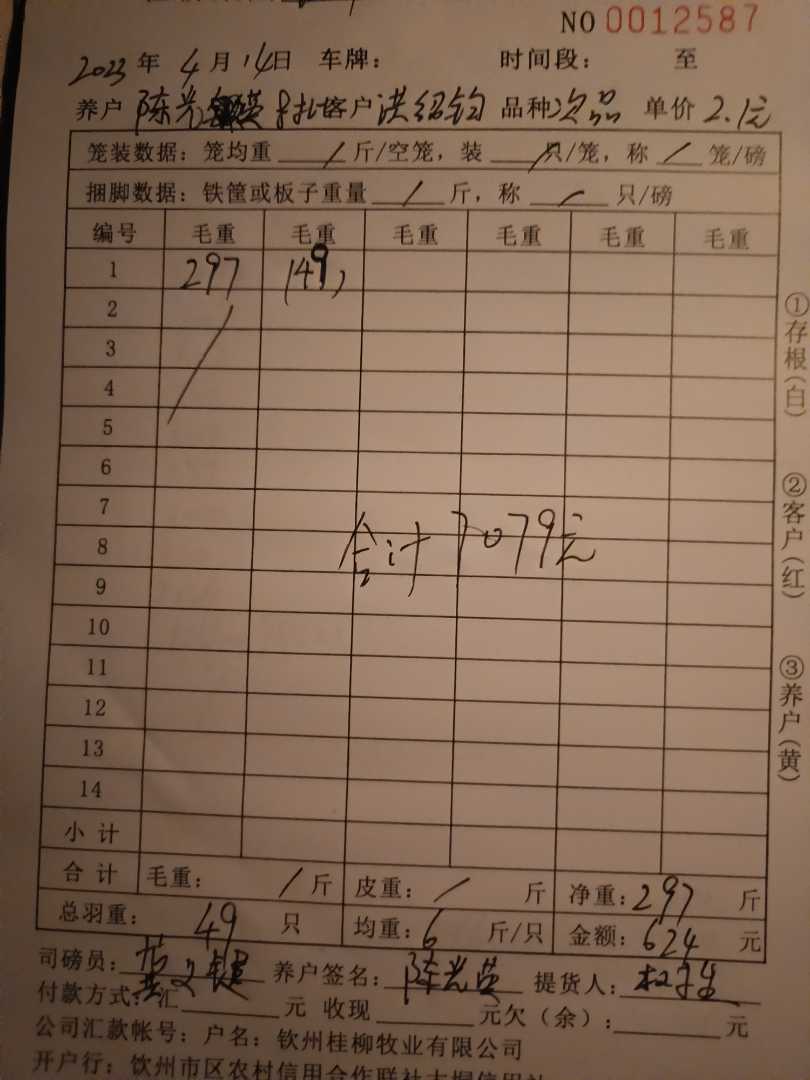 NO 0012587
2023 年 4 月 14 日 车牌： 时间段： 至
养户 陈光英 客户 洪绍钧 品种 次品 单价 2.1元
笼装数据：笼均重 / 斤/空笼，装 / 只/笼，称 / 笼/磅
捆脚数据：铁筐或板子重量 / 斤，称 / 只/磅
编号 毛重 毛重 毛重 毛重 毛重 毛重
1 297 (49)
2
3
4
5
6
7
合计 7079元
8
9
10
11
12
13
14
小计
合计 毛重： / 斤 皮重： / 斤 净重：297 斤
总羽重： 49 只 均重：6 斤/只 金额：624 元
司磅员： 养户签名：陈光英 提货人：
付款方式：汇 元 收现 元欠（余）： 元
公司汇款帐号：户名：钦州桂柳牧业有限公司
开户行：钦州市区农村信用合作联社
①存根（白）
②客户（红）
③养户（黄）